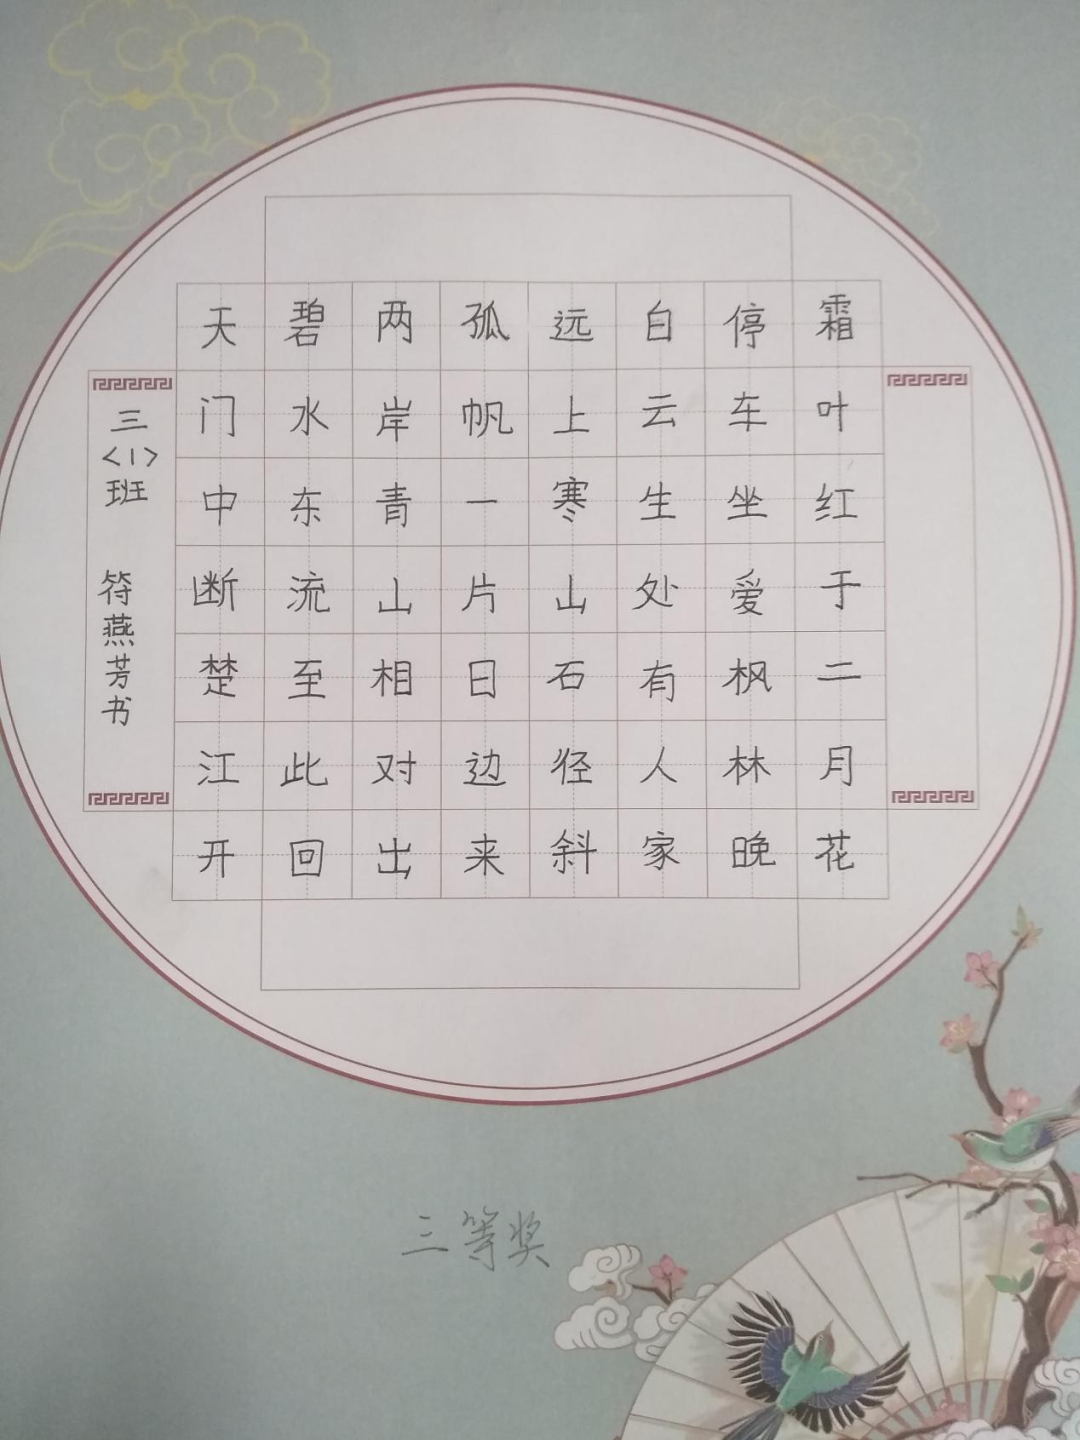 天门中断楚江开
碧水东流至此回
两岸青山相对出
孤帆一片日边来
远上寒山石径斜
白云生处有人家
停车坐爱枫林晚
霜叶红于二月花
三<1>班 符燕芳书
三等奖